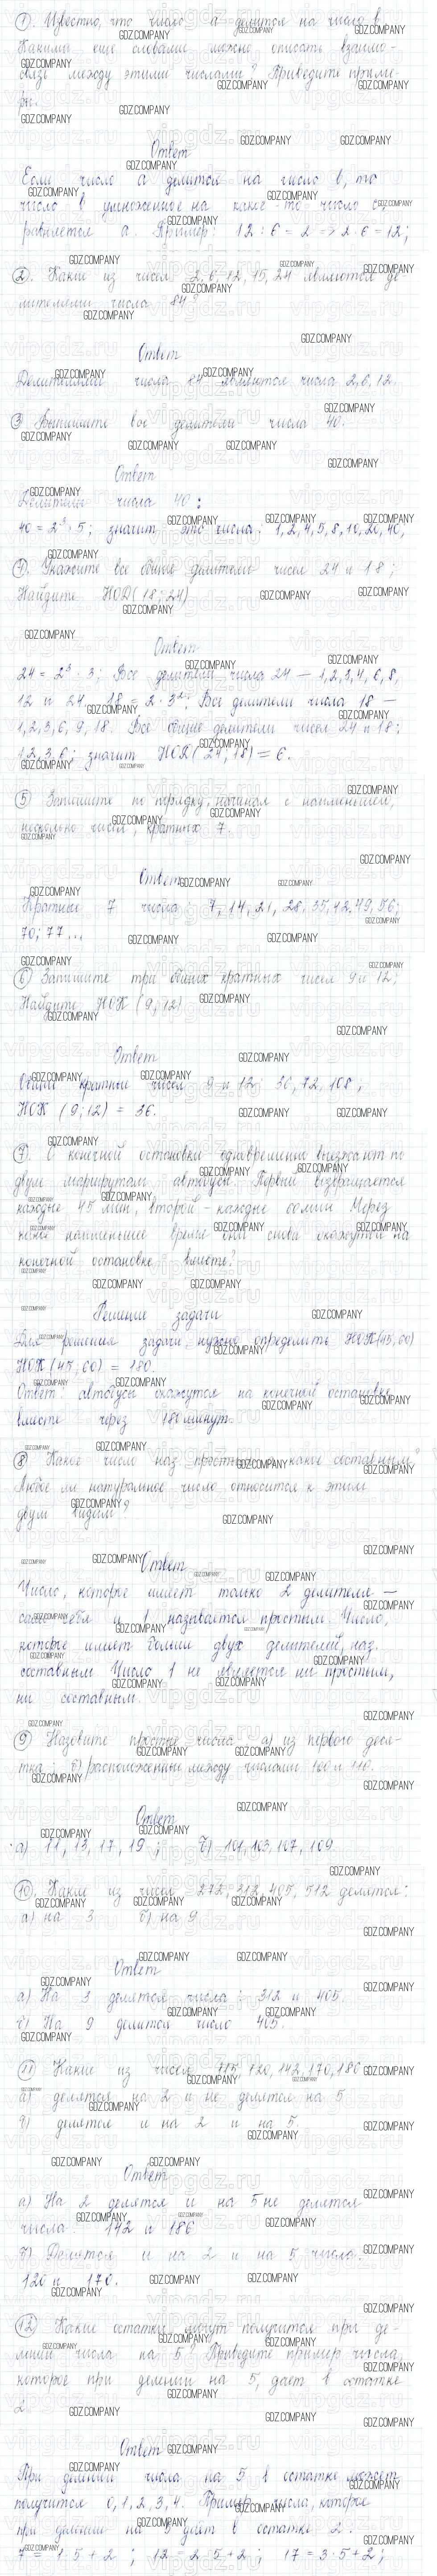 ① Известно, что число a делится на число b.
Какими еще словами можно описать взаимо-
связь между этими числами? Приведите приме-
ры.
Ответ
Если число a делится на число b, то
число b умноженное на какое-то число c,
равняется a. Пример: 12 : 6 = 2 => 2 · 6 = 12;
②. Какие из чисел 2, 6, 12, 15, 24 являются де-
лителями числа 84?
Ответ
Делителями числа 84 являются числа 2, 6, 12.
③ Выпишите все делители числа 40.
Ответ
Делители числа 40:
40 = 2³ · 5; значит это числа: 1, 2, 4, 5, 8, 10, 20, 40,
Укажите все общие делители чисел 24 и 18;
Найдите НОД (18; 24)
Ответ
24 = 2³ · 3; Все делители числа 24 — 1, 2, 3, 4, 6, 8,
12 и 24. 18 = 2 · 3²; Все делители числа 18 —
1, 2, 3, 6, 9, 18. Все общие делители чисел 24 и 18:
1, 2, 3, 6; значит (24; 18) = 6.
⑤ Запишите по порядку, начиная с наименьшего,
несколько чисел, кратных 7.
Ответ
Кратные 7 числа: 7, 14, 21, 28, 35, 42, 49, 56;
70; 77...
⑥ Запишите три общих кратных чисел 9 и 12;
Найдите НОК (9; 12)
Ответ
Общие кратные чисел 9 и 12: 36, 72, 108,
НОК (9; 12) = 36.
⑦. С конечной остановки одновременно выезжают по
двум маршрутам автобусы. Первый возвращается
каждые 45 мин, второй - каждые 60 мин. Через
какое наименьшее время они снова окажутся на
конечной остановке вместе?
Решение задачи
Для решения задачи нужно определить НОК (45, 60)
НОК (45, 60) = 180.
Ответ: автобусы окажутся на конечной остановке
вместе через 180 минут.
⑧ Какое число наз. простым, какое составным?
Любое ли натуральное число относится к этим
двум видам?
Ответ
Число, которое имеет только 2 делителя —
само себя и 1 называется простым. Число,
которое имеет больше двух делителей, наз.
составным. Число 1 не является ни простым,
ни составным.
⑨ Назовите простые числа: а) из первого деся-
тка; б) расположенные между числами 100 и 110.
Ответ
а) 11, 13, 17, 19; б) 101, 103, 107, 109.
⑩. Какие из чисел 272, 312, 405, 512 делятся:
а) на 3 б) на 9
Ответ
а) На 3 делятся числа: 312 и 405.
б) На 9 делится число 405.
⑪ Какие из чисел 115, 120, 142, 170, 186:
а) делятся на 2 и не делятся на 5
б) делятся и на 2 и на 5
Ответ
а) На 2 делятся и на 5 не делятся
числа: 142 и 186
б) Делятся и на 2 и на 5 числа:
120 и 170.
⑫ Какие остатки могут получится при де-
лении числа на 5? Приведите пример числа,
которое при делении на 5, дает в остатке
2.
Ответ
При делении числа на 5 в остатке может
получится 0, 1, 2, 3, 4. Пример числа, которое
при делении на 5 дает в остатке 2:
7 = 1 · 5 + 2; 12 = 2 · 5 + 2; 17 = 3 · 5 + 2;